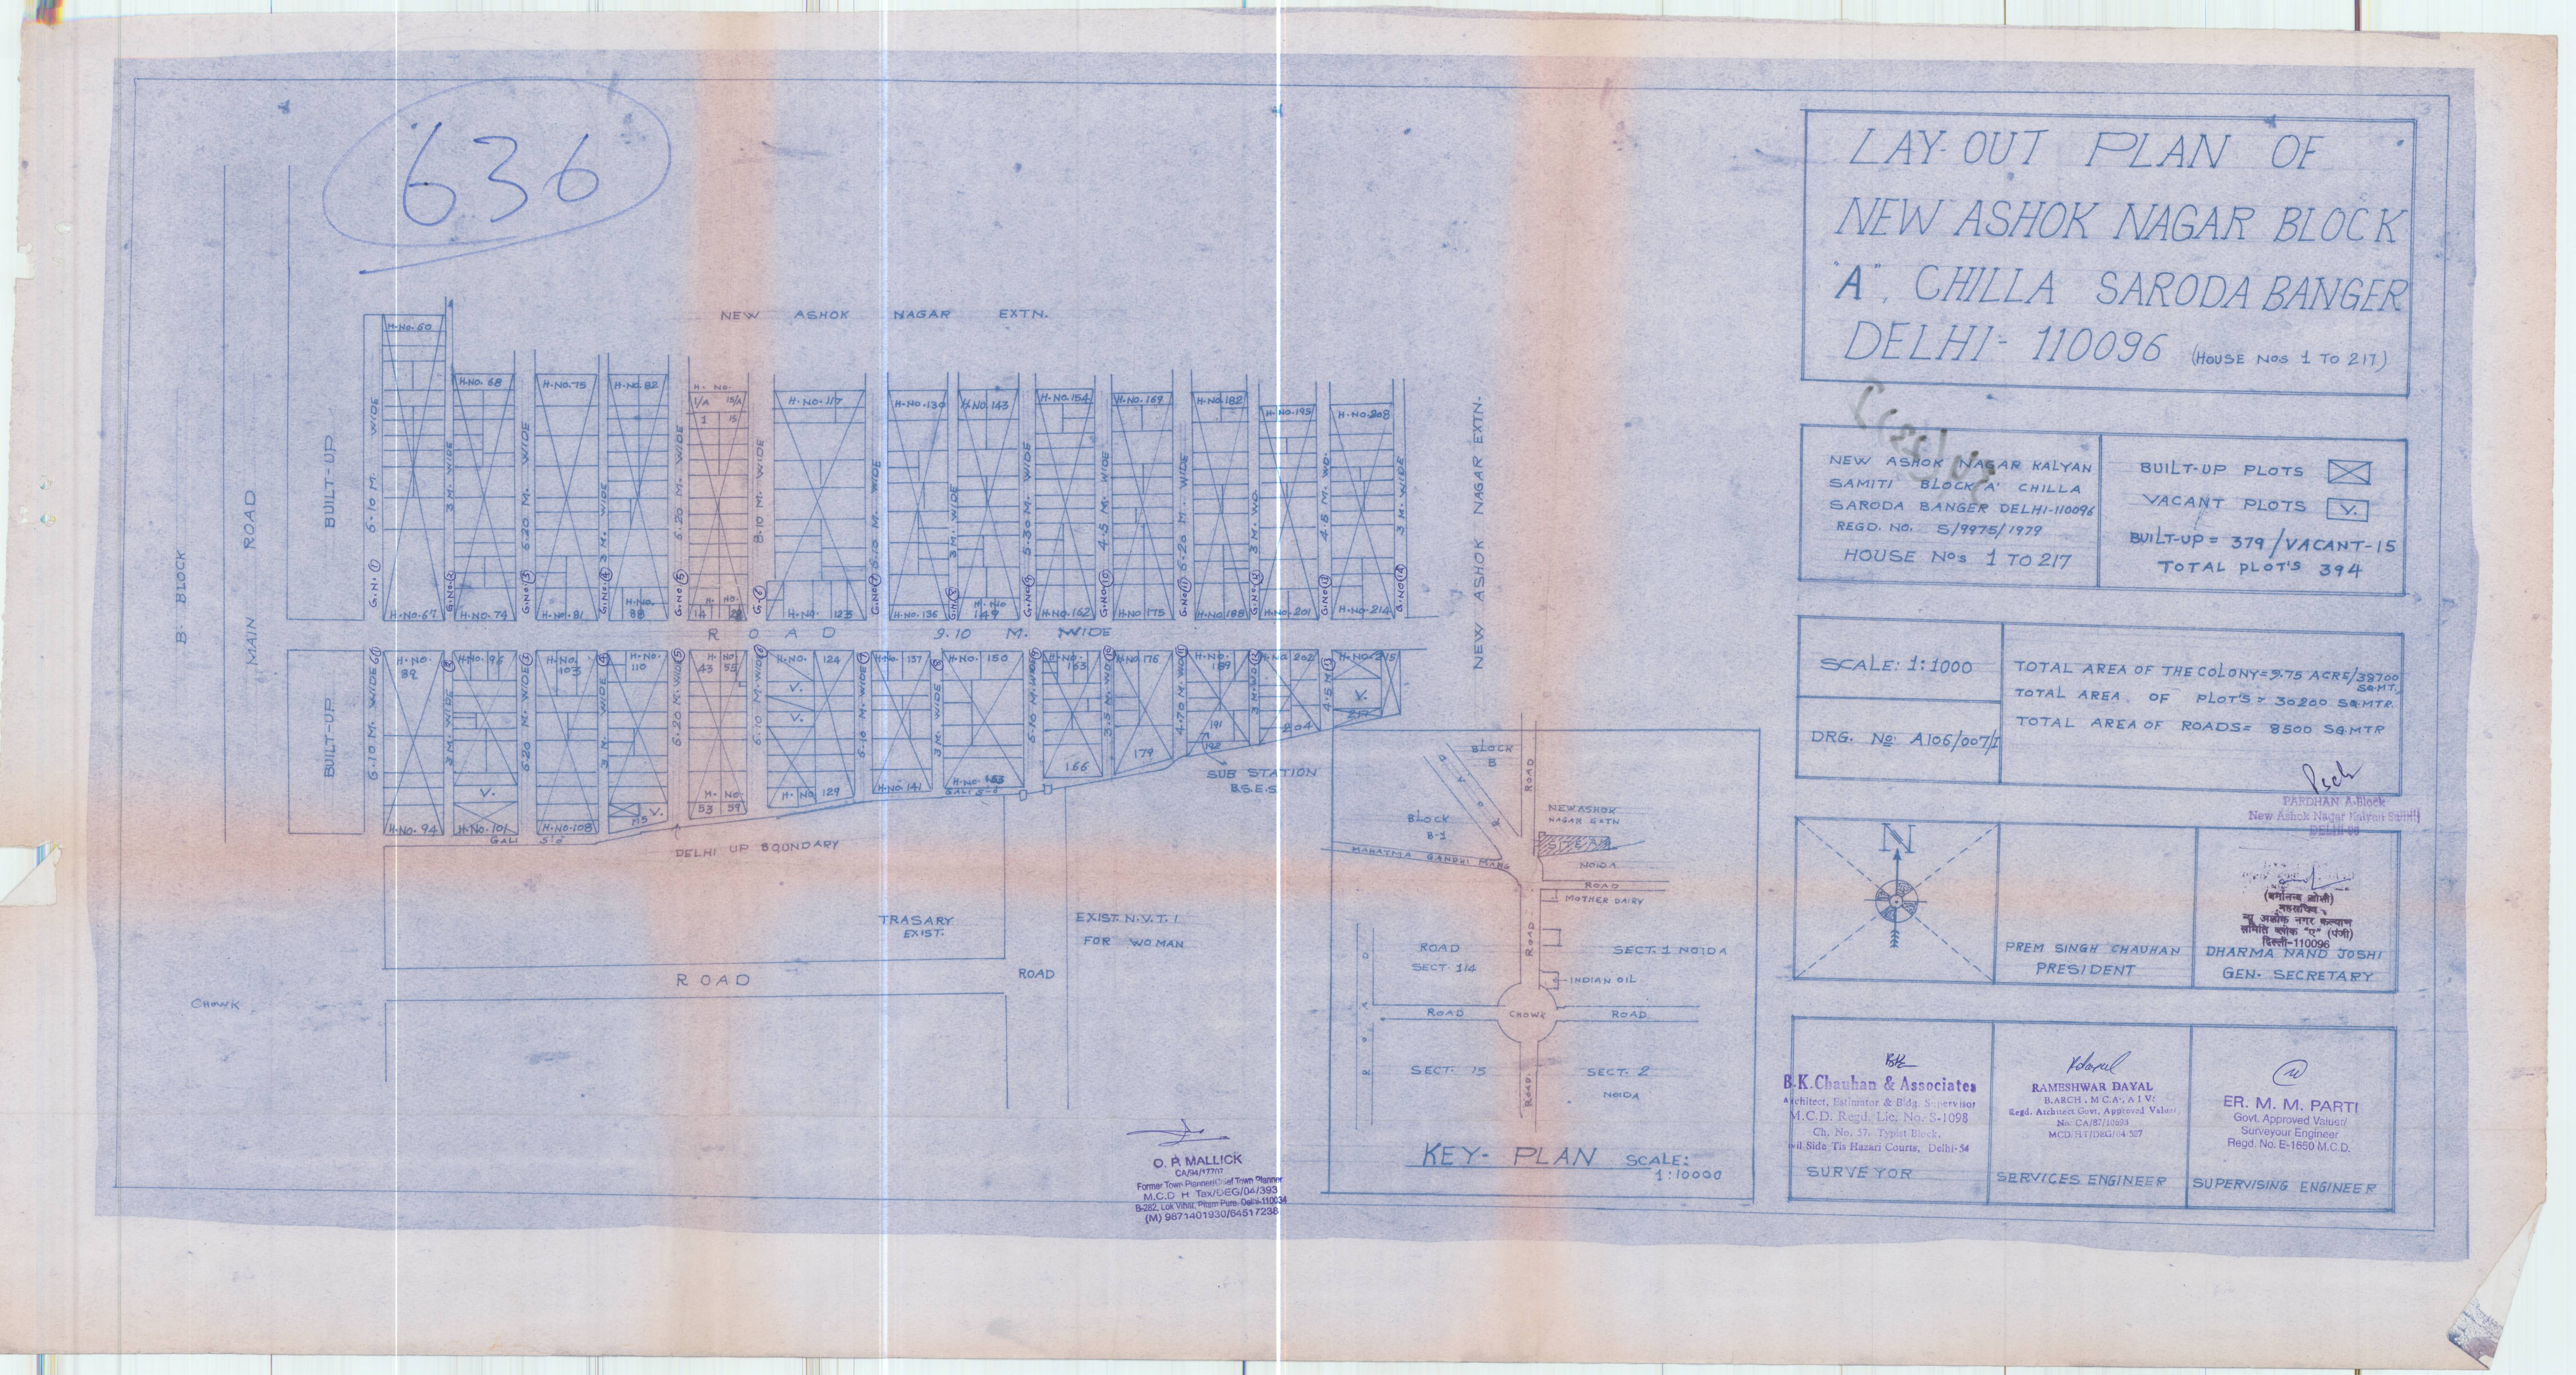 636
LAY-OUT PLAN OF
NEW ASHOK NAGAR BLOCK
"A", CHILLA SARODA BANGER
DELHI- 110096 (HOUSE NOS 1 TO 217)
NEW ASHOK NAGAR KALYAN
SAMITI BLOCK 'A' CHILLA
SARODA BANGER DELHI-110096
REGD. NO. S/9975/1979
HOUSE NOS 1 TO 217
BUILT-UP PLOTS
VACANT PLOTS V.
BUILT-UP = 379/VACANT-15
TOTAL PLOT'S 394
SCALE: 1:1000
DRG. NO: A106/007/I
TOTAL AREA OF THE COLONY=9.75 ACRE/38700
SQ.MT.
TOTAL AREA OF PLOT'S = 30200 SQ.MTR.
TOTAL AREA OF ROADS= 8500 SQ.MTR
PARDHAN A-Block
New Ashok Nagar Kalyan Samiti
DELHI-96
N
PREM SINGH CHAUHAN
PRESIDENT
महासचिव
न्यू अशोक नगर कल्याण
समिति ब्लोक "ए" (पंजी)
दिल्ली-110096
DHARMA NAND JOSHI
GEN. SECRETARY
B.K.Chauhan & Associates
Architect, Estimator & Bldg. Supervisor
M.C.D. Regd. Lic. No. S-1098
Ch. No. 57, Typist Block,
Civil Side Tis Hazari Courts, Delhi-54
SURVEYOR
RAMESHWAR DAYAL
B.ARCH, M.C.A., A.I.V.
Regd. Architect Govt. Approved Valuer
SERVICES ENGINEER
ER. M. M. PARTI
Govt. Approved Valuer/
Surveyour Engineer
Regd. No. E-1650 M.C.D.
SUPERVISING ENGINEER
B. BLOCK
MAIN ROAD
BUILT-UP
BUILT-UP
NEW ASHOK NAGAR EXTN.
NEW ASHOK NAGAR EXTN.
H.NO.60
H.NO.68
H.NO.75
H.NO.82
H. NO.
1/A 15/A
1 15
H.NO.117
H.NO.130
H.NO.143
H.NO.154
H.NO.169
H.NO.182
H.NO.195
H.NO.208
G.NO. 1 6.10 M. WIDE
G.NO. 2 3 M. WIDE
G.NO. 3 6.20 M. WIDE
G.NO. 4 3 M. WIDE
G.NO. 5 6.20 M. WIDE
G. 6 8.10 M. WIDE
G.NO. 7 6.10 M. WIDE
G.N. 8 3 M. WIDE
G.NO. 9 5.30 M. WIDE
G.NO. 10 4.5 M. WIDE
G.NO. 11 5.20 M. WIDE
G.NO. 12 3 M. WD.
G.NO. 13 4.5 M. WD.
G.NO. 14 3 M. WIDE
H.NO.67
H.NO.74
H.NO.81
H.NO. 88
H. NO.
14
H.NO. 123
H.NO.136
H.NO 149
H.NO.162
H.NO 175
H.NO.188
H.NO.201
H.NO.214
ROAD 9.10 M. WIDE
H.NO. 89
H.NO.95
H.NO. 103
H.NO. 110
H. NO.
43 55
H.NO. 124
H.NO. 137
H.NO.150
H.NO. 163
H.NO.176
H.NO. 189
H.NO.202
H.NO.215
6.10 M. WIDE
3 M. WIDE
6.20 M. WIDE
3 M. WIDE
6.20 M. WIDE
6.10 M. WIDE
6.10 M. WIDE
3 M. WIDE
6.10 M. WIDE
3.5 M. WD.
4.70 M. WD.
3 M. WD.
4.5 M.
V.
V.
V.
V.
V.
H.NO. 94
H.NO.101
H.NO.108
H. NO.
53 59
H. NO. 129
H.NO. 141
H.NO. 153
166
179
191
192
204
217
GALI 5'-0"
GALI 5'-0"
SUB STATION
B.S.E.S.
DELHI UP BOUNDARY
TRASARY
EXIST.
EXIST. N.V.T.I
FOR WOMAN
ROAD
ROAD
CHOWK
O. P. MALLICK
Former Town Planner/Chief Town Planner
M.C.D H Tax/DEG/04/393
B-282, Lok Vihar, Pitam Pura, Delhi-110034
(M) 9871401930/64517238
BLOCK
B
ROAD
ROAD
NEW ASHOK
NAGAR EXTN
BLOCK
B-1
SITE
MAHATMA GANDHI MARG
NOIDA
ROAD
MOTHER DAIRY
ROAD
SECT. 14
ROAD
SECT. 1 NOIDA
INDIAN OIL
ROAD
ROAD
CHOWK
ROAD
SECT. 15
SECT. 2
NOIDA
ROAD
KEY- PLAN SCALE:
1:10000